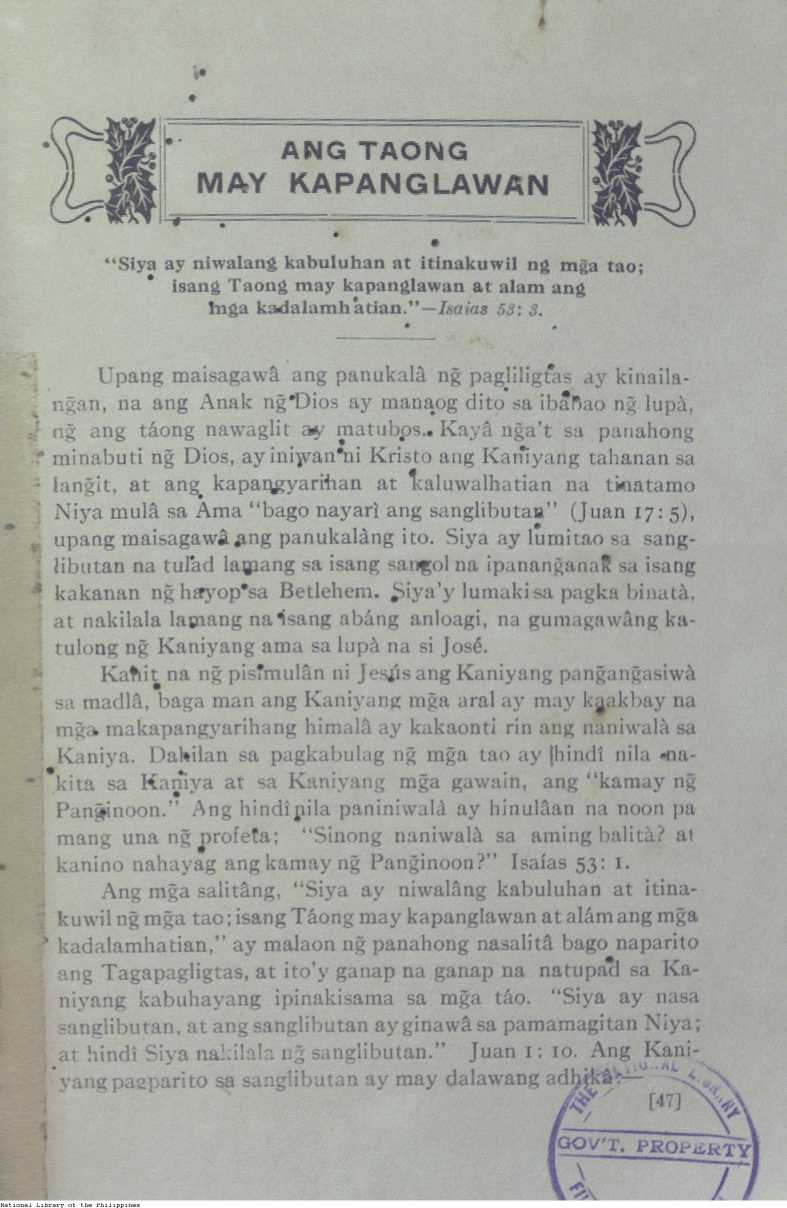 ANG TAONG
MAY KAPANGLAWAN
“Siya ay niwalang kabuluhan at itinakuwil ng mg̃a tao;
isang Taong may kapanglawan at alam ang
mga kadalamhatian.”—Isaias 53: 3.
Upang maisagawâ ang panukalà ng̃ pagliligtas ay kinaila-
ng̃an, na ang Anak ng̃ Dios ay manaog dito sa ibabao ng̃ lupà,
ng̃ ang táong nawaglit ay matubos. Kayâ ng̃a't sa panahong
minabuti ng̃ Dios, ay iniwan ni Kristo ang Kaniyang tahanan sa
lang̃it, at ang kapangyarihan at kaluwalhatian na tinatamo
Niya mulâ sa Ama “bago nayarî ang sanglibutan” (Juan 17: 5),
upang maisagawâ ang panukalàng ito. Siya ay lumitao sa sang-
libutan na tulad lamang sa isang sangol na ipanang̃anak sa isang
kakanan ng̃ hayop sa Betlehem. Siya'y lumaki sa pagka binatà,
at nakilala lamang na isang abáng anloagi, na gumagawâng ka-
tulong ng̃ Kaniyang ama sa lupà na si José.
Kahit na ng̃ pisimulân ni Jesús ang Kaniyang pang̃ang̃asiwà
sa madlâ, baga man ang Kaniyang mg̃a aral ay may kaakbay na
mg̃a makapangyarihang himalâ ay kakaonti rin ang naniwalà sa
Kaniya. Dahilan sa pagkabulag ng̃ mg̃a tao ay hindî nila na-
kita sa Kaniya at sa Kaniyang mg̃a gawain, ang “kamay ng̃
Pang̃inoon.” Ang hindî nila paniniwalà ay hinulâan na noon pa
mang una ng̃ profeta; “Sinong naniwalà sa aming balità? at
kanino nahayag ang kamay ng̃ Pang̃inoon?” Isaías 53: 1.
Ang mg̃a salitâng, “Siya ay niwalâng kabuluhan at itina-
kuwil ng̃ mg̃a tao; isang Táong may kapanglawan at alám ang mg̃a
kadalamhatian,” ay malaon ng̃ panahong nasalitâ bago naparito
ang Tagapagligtas, at ito'y ganap na ganap na natupad sa Ka-
niyang kabuhayang ipinakisama sa mg̃a táo. “Siya ay nasa
sanglibutan, at ang sanglibutan ay ginawâ sa pamamagitan Niya;
at hindî Siya nakilala ng̃ sanglibutan.” Juan 1: 10. Ang Kani-
yang pagparito sa sanglibutan ay may dalawang adhikâ:—
[47]
THE NATIONAL LIBRARY
GOV'T. PROPERTY
National Library of the Philippines